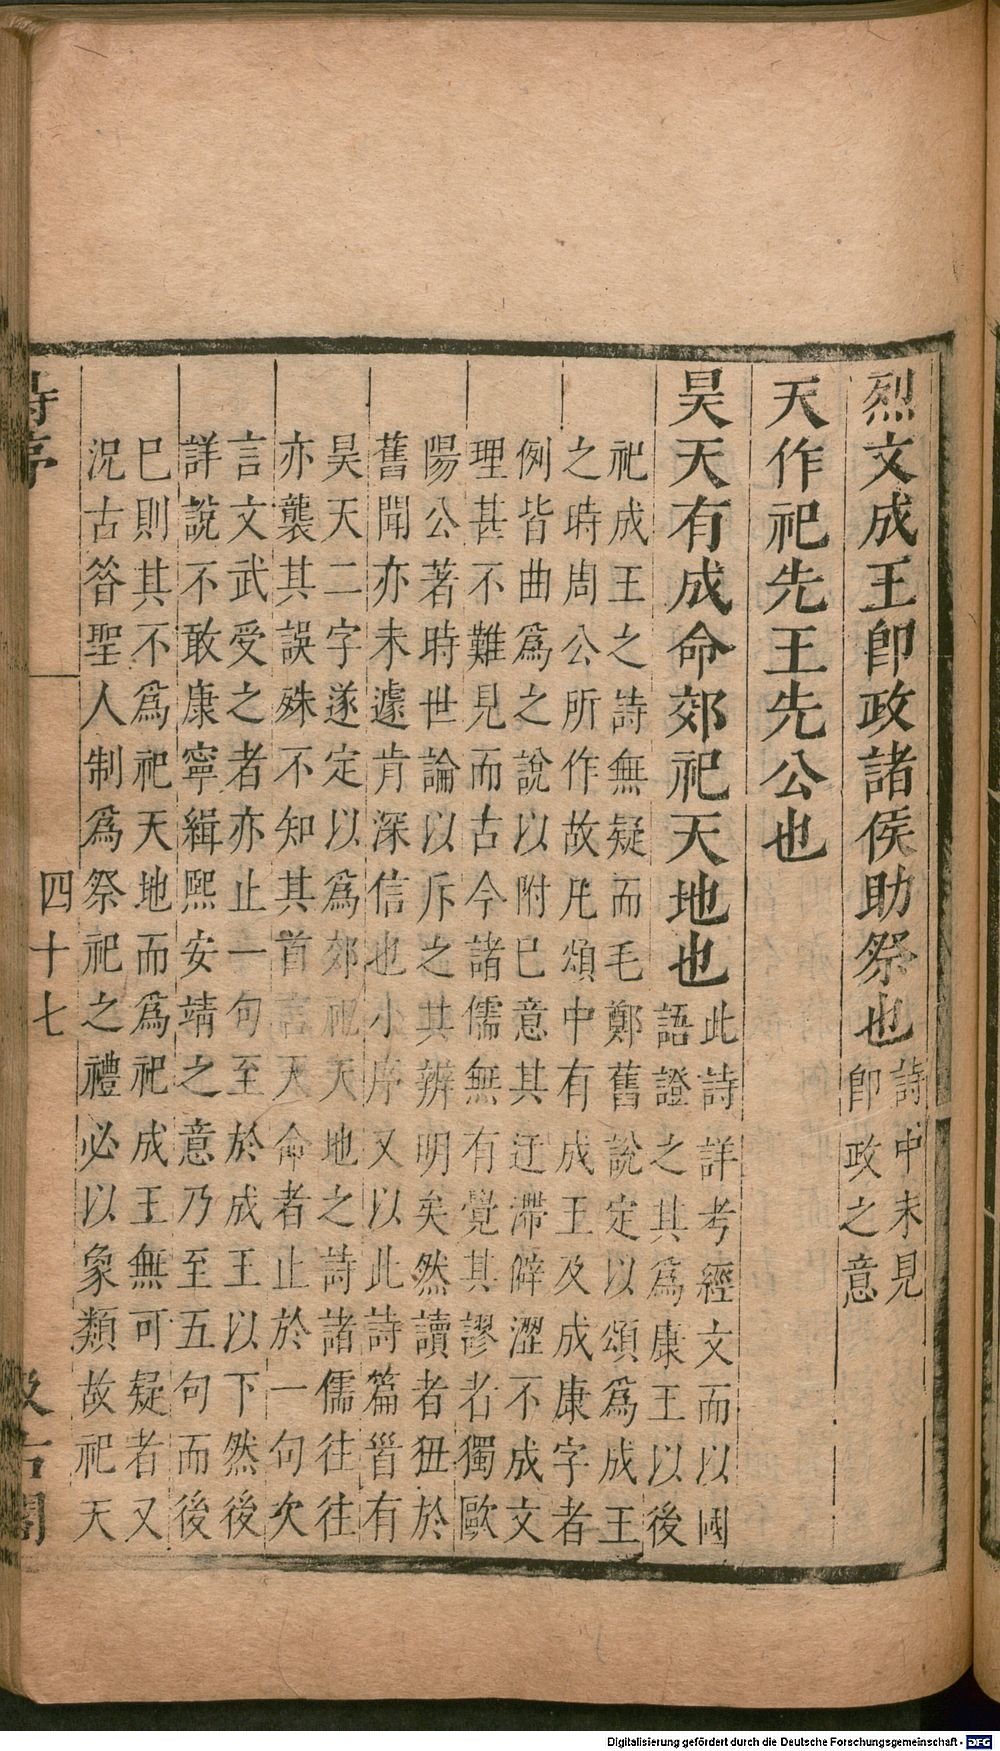 烈文成王卽政諸侯助祭也詩中未見
卽政之意
天作祀先王先公也
昊天有成命郊祀天地也此詩詳考經文而以國
語證之其爲康王以後
祀成王之詩無疑而毛鄭舊說定以頌爲成王
之時周公所作故凡頌中有成王及成康字者
例皆曲爲之說以附巳意其迂滯僻澀不成文
理甚不難見而古今諸儒無有覺其謬者獨歐
陽公著時世論以斥之其辨明矣然讀者狃於
舊聞亦未遽肯深信也小序又以此詩篇首有
昊天二字遂定以爲郊祀天地之詩諸儒往往
亦襲其誤殊不知其首言天命者止於一句次
言文武受之者亦止一句至於成王以下然後
詳說不敢康寧緝熙安靖之意乃至五句而後
巳則其不爲祀天地而爲祀成王無可疑者又
況古咎聖人制爲祭祀之禮必以象類故祀天
詩序
四十七
汲古閣
Digitalisierung gefördert durch die Deutsche Forschungsgemeinschaft - DFG